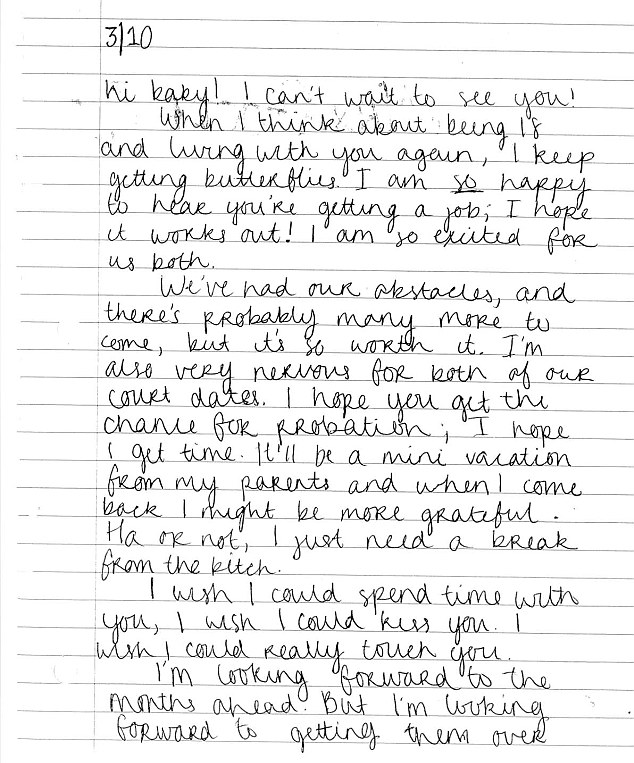 3/10
hi baby! I can't wait to see you!
When I think about being 18
and living with you again, I keep
getting butterflies. I am so happy
to hear you're getting a job; I hope
it works out! I am so excited for
us both.
We've had our obstacles, and
there's probably many more to
come, but it's so worth it. I'm
also very nervous for both of our
court dates. I hope you get the
chance for probation; I hope
I get time. It'll be a mini vacation
from my parents and when I come
back I might be more grateful.
Ha or not, I just need a break
from the bitch.
I wish I could spend time with
you, I wish I could kiss you. I
wish I could really touch you.
I'm looking forward to the
months ahead. But I'm looking
forward to getting them over